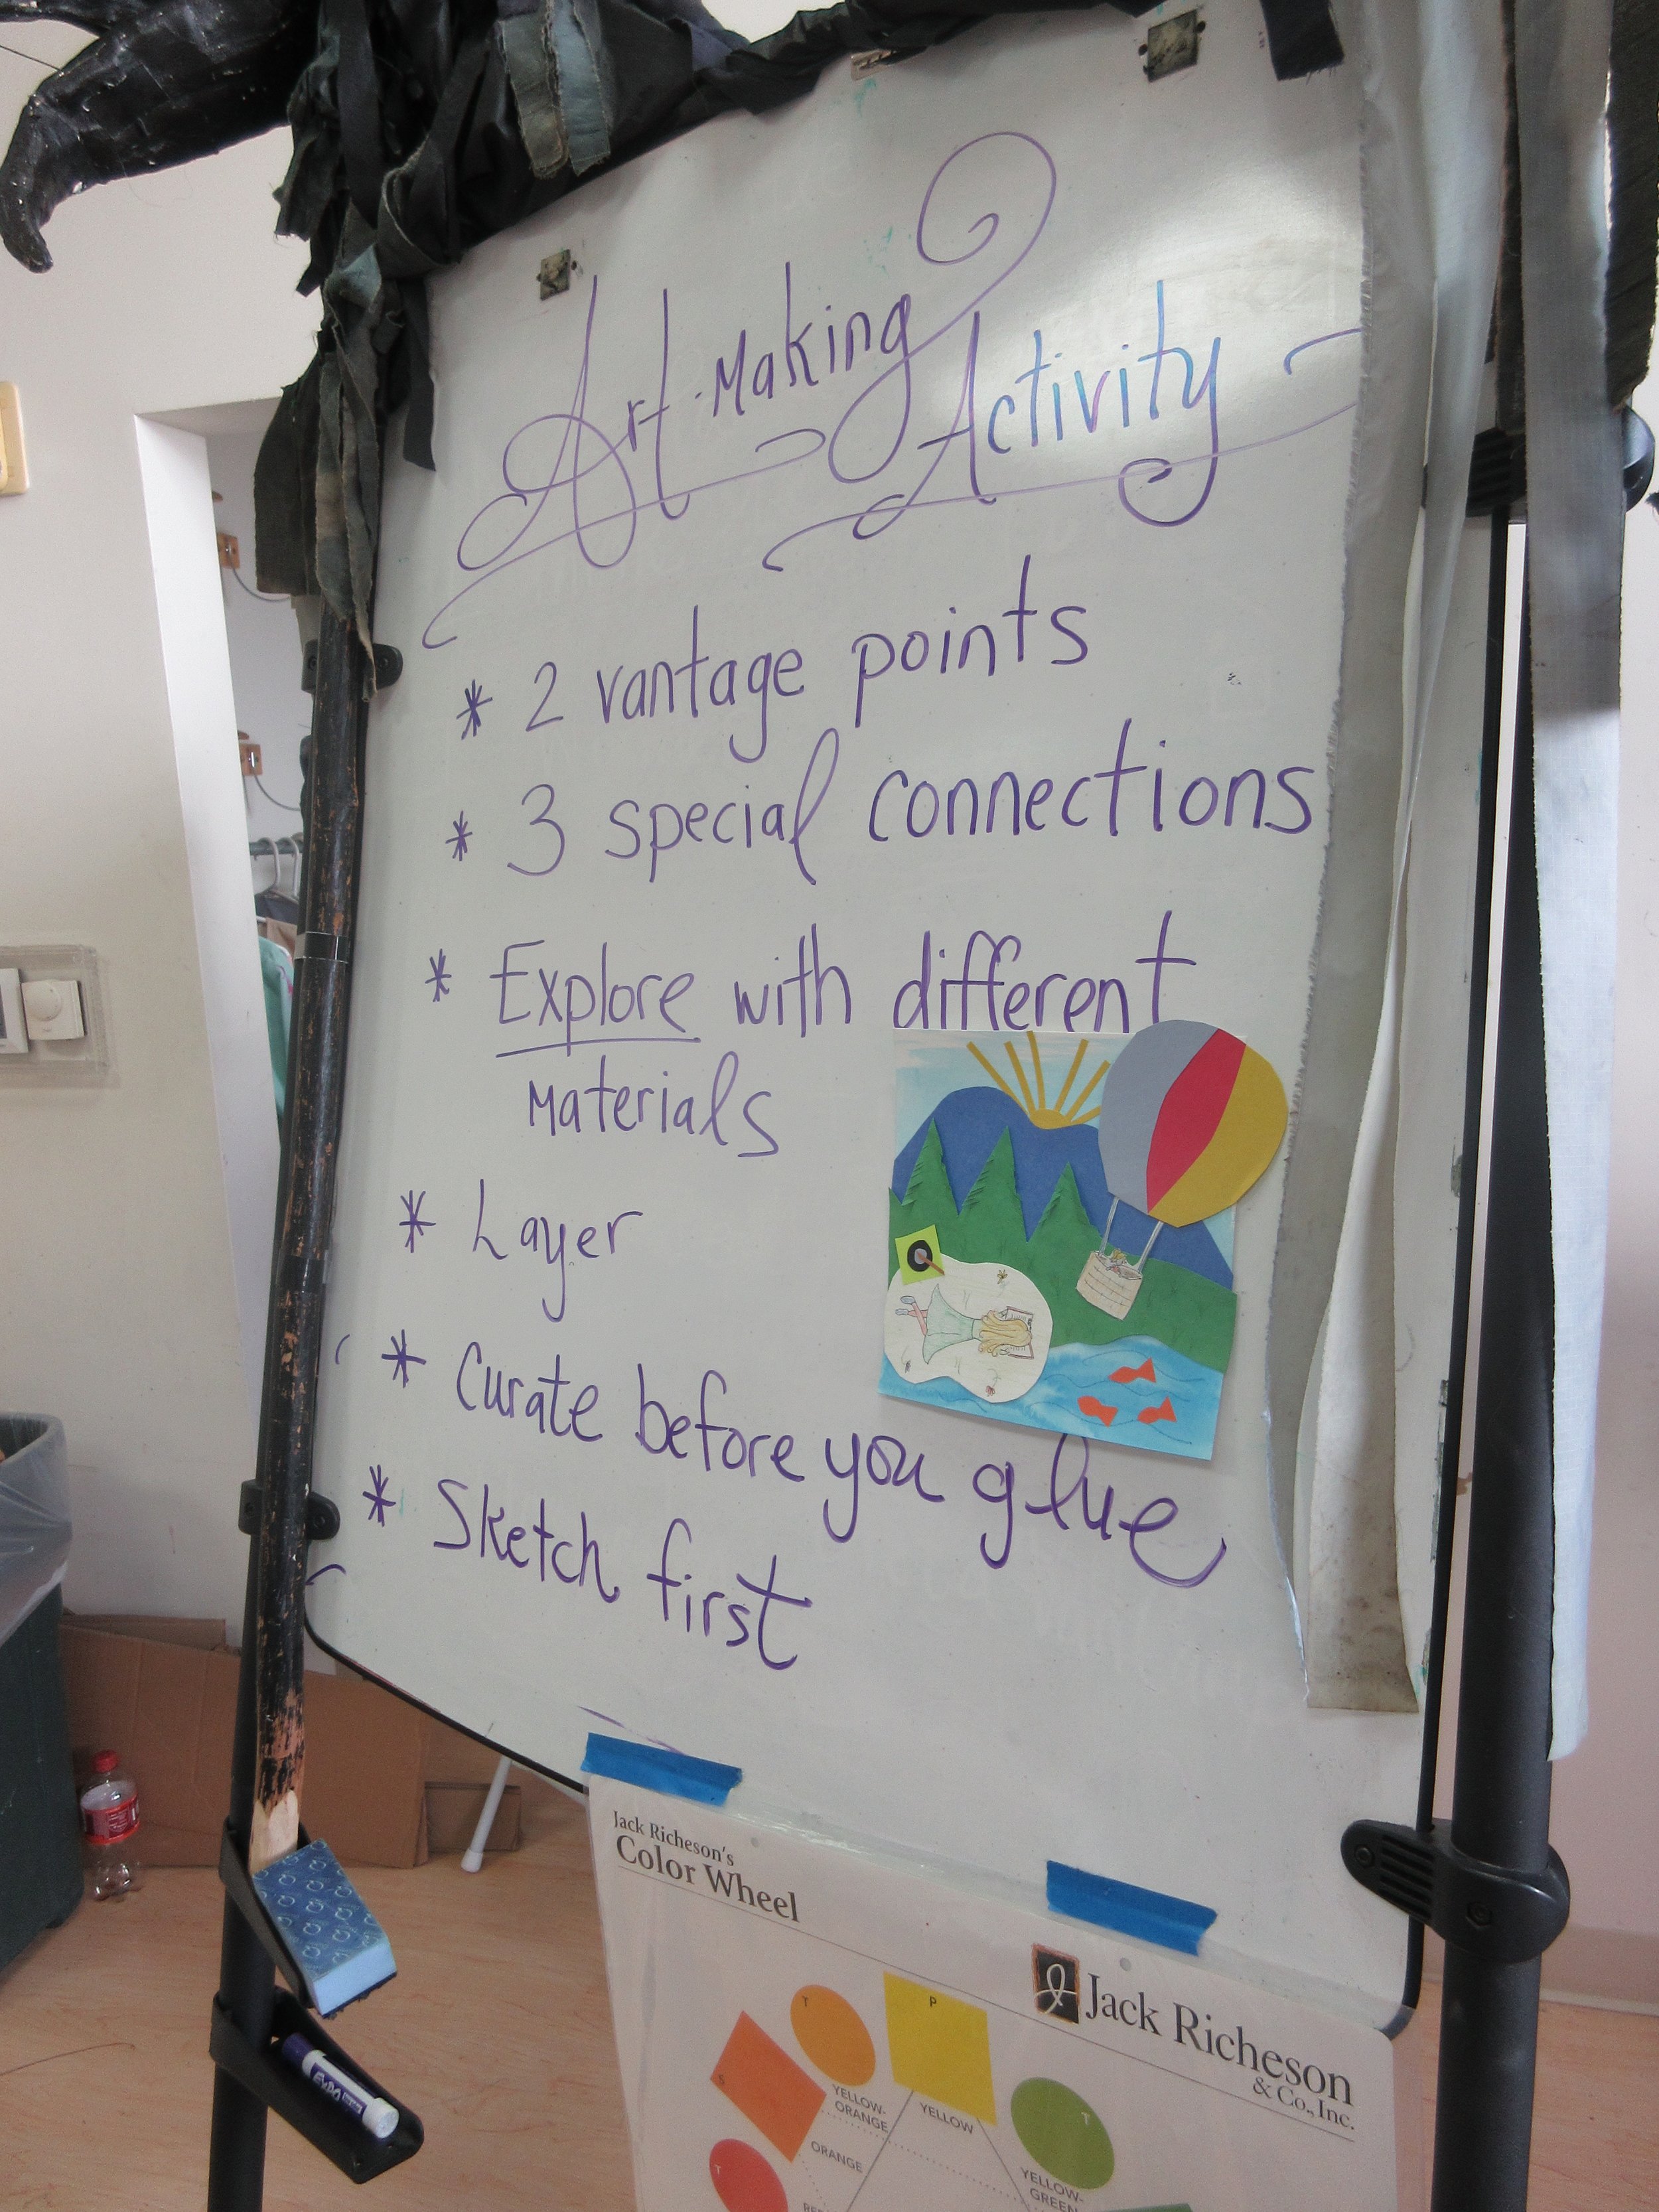 Art-Making
Activity
* 2 vantage points
* 3 special connections
* Explore with different
materials
* Layer
* Curate before you glue
* Sketch first
Jack Richeson's
Color Wheel
Jack Richeson
& Co., Inc.
P
T
S
T
T
YELLOW-
ORANGE
YELLOW
ORANGE
YELLOW-
GREEN
EXPO